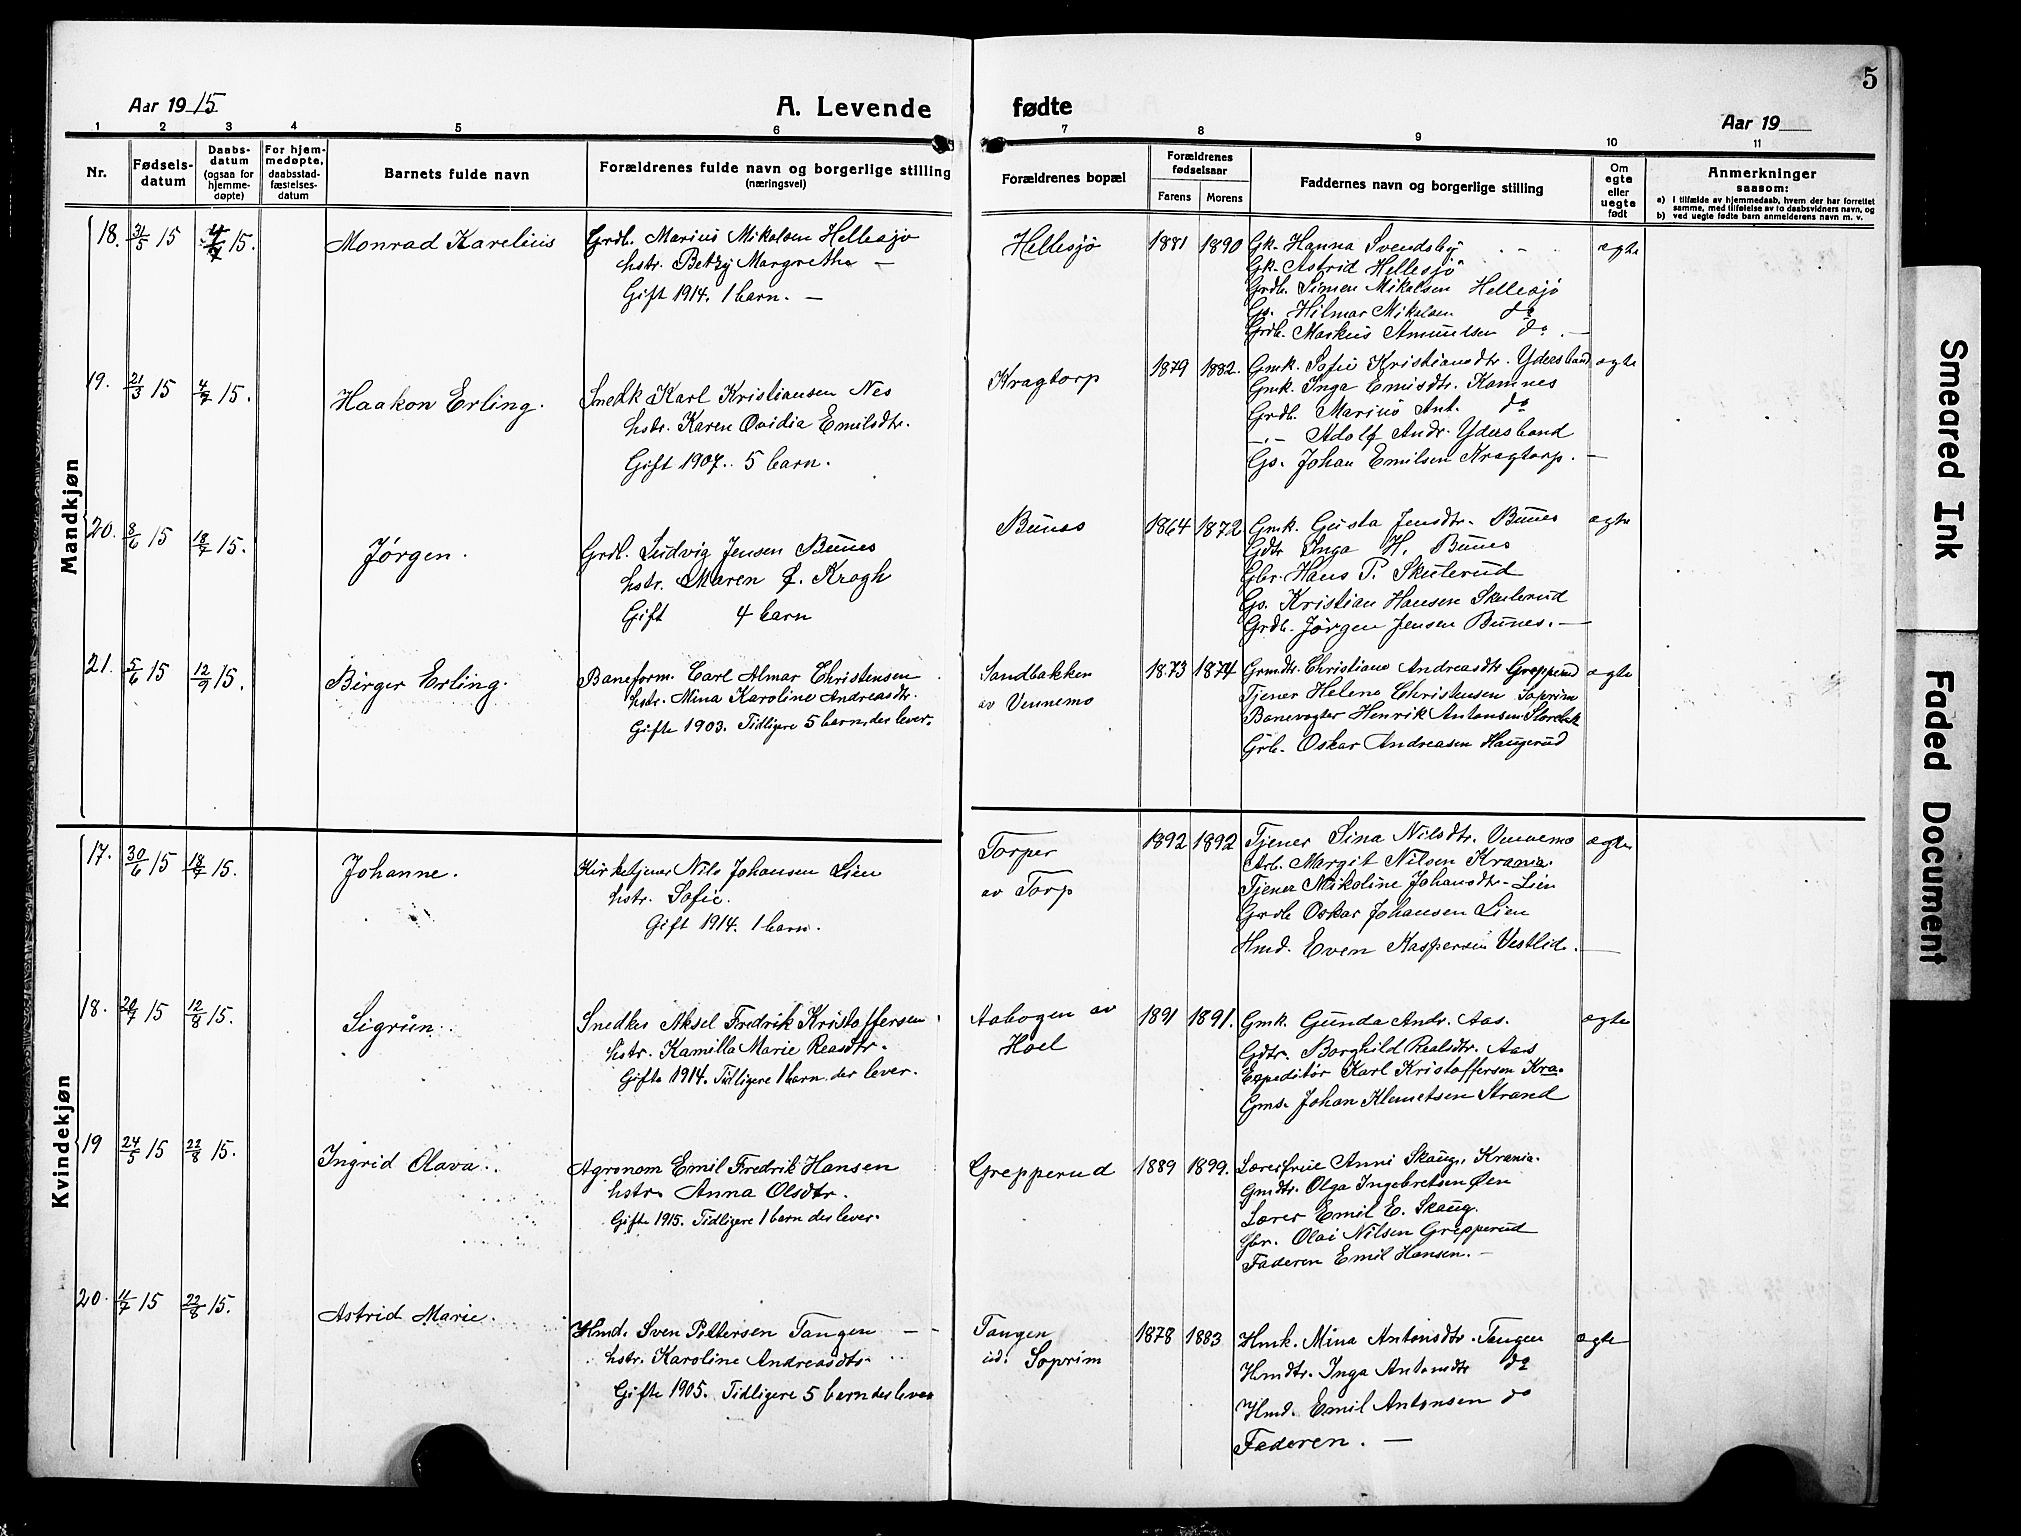 5
Aar 1915
A. Levende fødte
Aar 19
1 2 3 4 5 6 7 8 9 10 11
Nr.
Fødsels-
datum
Daabs-
datum
(ogsaa for
hjemme-
døpte)
For hjem-
medøpte,
daabsstad-
fæstelses-
datum
Barnets fulde navn
Forældrenes fulde navn og borgerlige stilling
(næringsvei)
Forældrenes bopæl
Forældrenes
fødselsaar
Farens Morens
Faddernes navn og borgerlige stilling
Om
egte
eller
uegte
født
Anmerkninger
saasom:
a) I tilfælde av hjemmedaab, hvem der har forrettet
samme, med tilføielse av to daabsvidners navn, og
b) ved uegte fødte barn anmelderens navn m. v.
Mandkjøn
18. 31/5 15 4/7 15. Monrad Karelius
Grdb. Marius Mikalsen Hellesjø
hstr. Betzy Margrethe —
Gift 1914. 1 barn. —
Hellesjø 1881 1890
Gk. Hanna Svendsby
Gk. Astrid Hellesjö
Grdb. Simen Mikalsen Hellesjø
Gs. Hilmar Mikalsen do
Grdb. Markus Amundsen do. —
egte
19. 21/3 15 4/7 15. Haakon Erling.
Snedk Karl Kristiansen Nes
hstr. Karen Ovidia Emilsdtr.
Gift 1907. 5 barn.
Kragtorp 1879 1882.
Gmk. Sofie Kristiansdtr. Ydersbond
Gmk. Inga Emisdtr. Kamnes
Grdb. Marius Ant. do
—.— Adolf Andr. Ydersbond
Gs. Johan Emilsen Kragtorp. —
egte
20. 8/6 15 18/7 15. Jørgen.
Grdb. Ludvig Jensen Bunes
hstr. Maren J. Krogh
Gift 4 barn
Bunes 1864 1872
Gmk. Gusta Jensdtr. Bunes
Gdtr Inga H. Bunes
Gbr. Hans P. Skulerud
Gs. Kristian Hansen Skulerud
Grdb. Jørgen Jensen Bunes. —
egte
21. 5/6 15 12/9 15. Birger Erling.
Baneform. Carl Almar Christensen
hstr. Mina Karoline Andreasdtr.
Gifte 1903. Tidligere 5 barn, der lever.
Sandbakken
av Vennemo
1873 1874
Grmdtr. Christiane Andreasdtr Grepperud
Tjener Helene Christensen Soprim
Banevogter Henrik Antonsen Storebæk
Grb. Oskar Andreasen Haugerud
egte
Kvindekjøn
17. 30/6 15 18/7 15. Johanne.
Kirketjener Nils Johansen Lien
hstr. Sofie.
Gift 1914. 1 barn.
Torper
av Torp
1892 1892
Tjener Sina Nilsdtr. Vennemo
Arb. Margit Nilsen Krania.
Tjener Mikoline Johansdtr. Lien
Grdb Oskar Johansen Lien
Hmd. Even Kaspersen Vestlid. —
egte
18. 20/7 15 12/8 15. Sigrun.
Snedker Aksel Fredrik Kristoffersen
hstr. Kamilla Marie Reasdtr.
Gifte 1914. Tidligere 1 barn der lever.
Aabogen av
Hoel
1891 1891.
Gmk. Gunda Andr. Aas.
Gdtr. Borghild Realsdtr. Aas
Expeditør Karl Kristoffersen Kra.
Gms. Johan Klemetsen Strand
egte
19 24/5 15 22/8 15. Ingrid Olava.
Agronom Emil Fredrik Hansen
hstr. Anna Olsdtr.
Gifte 1915. Tidligere 1 barn der lever.
Grepperud 1889 1899.
Lærerfrue Anni Skaug, Krania.
Gmdtr. Olga Ingebretsen Øen
Lærer Emil E. Skaug.
Gbr. Olai Nilsen Grepperud
Faderen Emil Hansen. —
20. 11/7 15 22/8 15. Astrid Marie.
Hmd. Sven Pettersen Tangen — —
hstr. Karoline Andreasdtr.
Gifte 1905. Tidligere 5 barn der lever
Tangen
ud. Soprim
1878 1883
Hmk. Mina Antonsdtr. Tangen
Hmdtr. Inga Antonsdtr do
Hmd. Emil Antonsen do
Faderen. —
egte
Smeared Ink
Faded Document